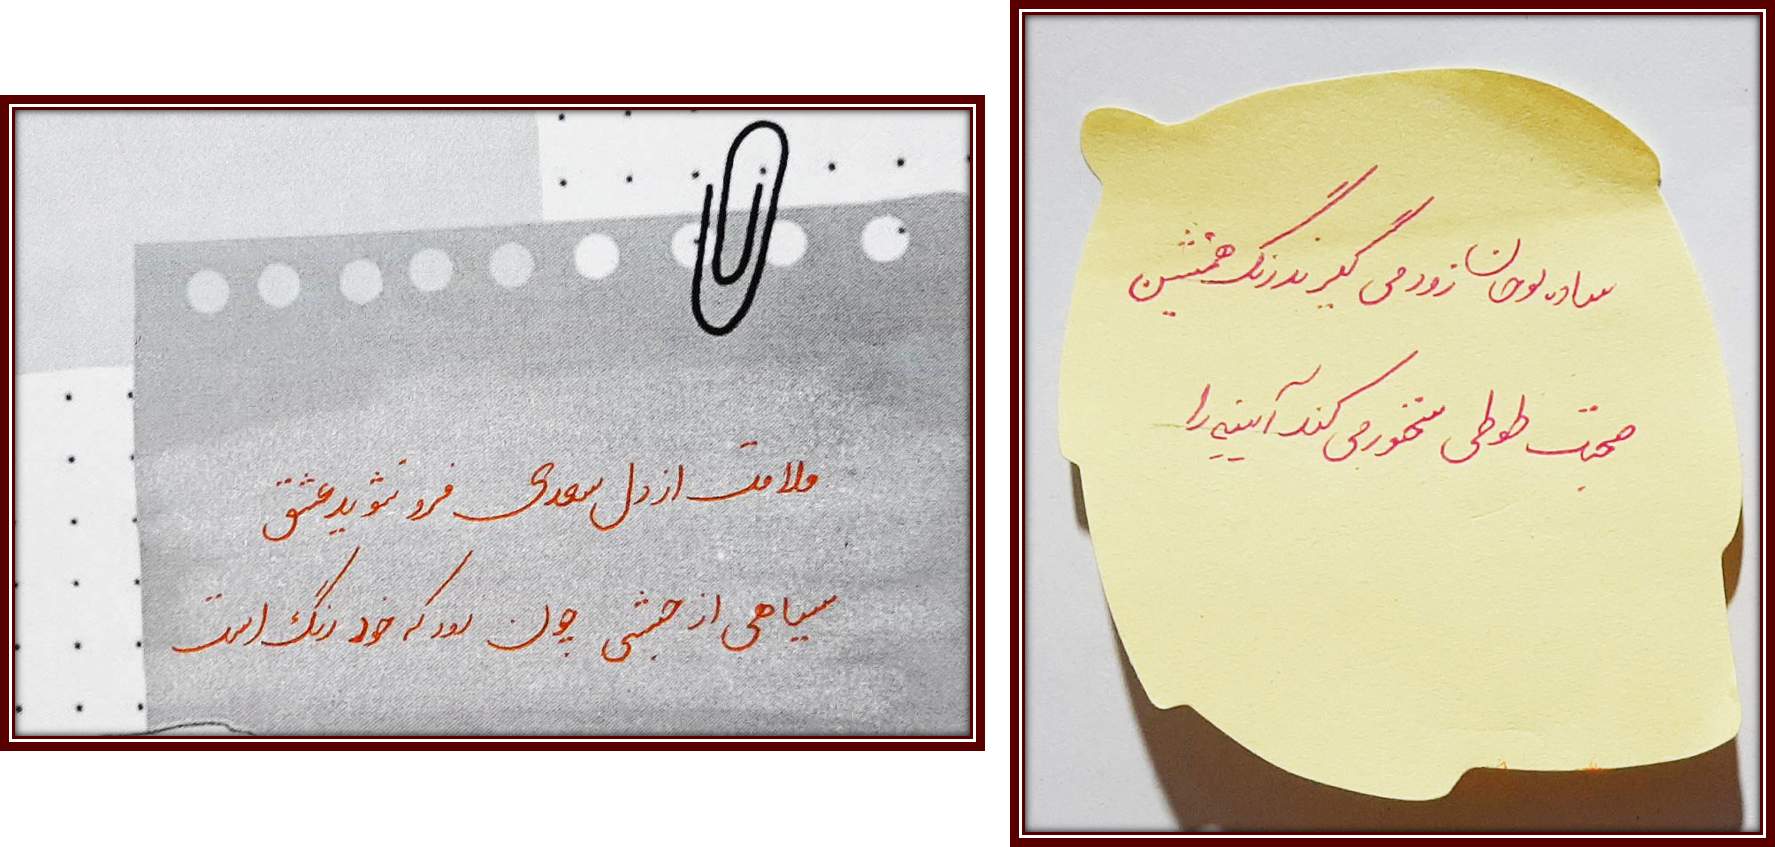 ملامت از دل سعدی فرو نشوید عشق
سیاهی از حبشی چون رود که خود رنگ است
ساده لوحان زود می گیرند رنگ همنشین
صحبت طوطی سخنور می کند آیینه را